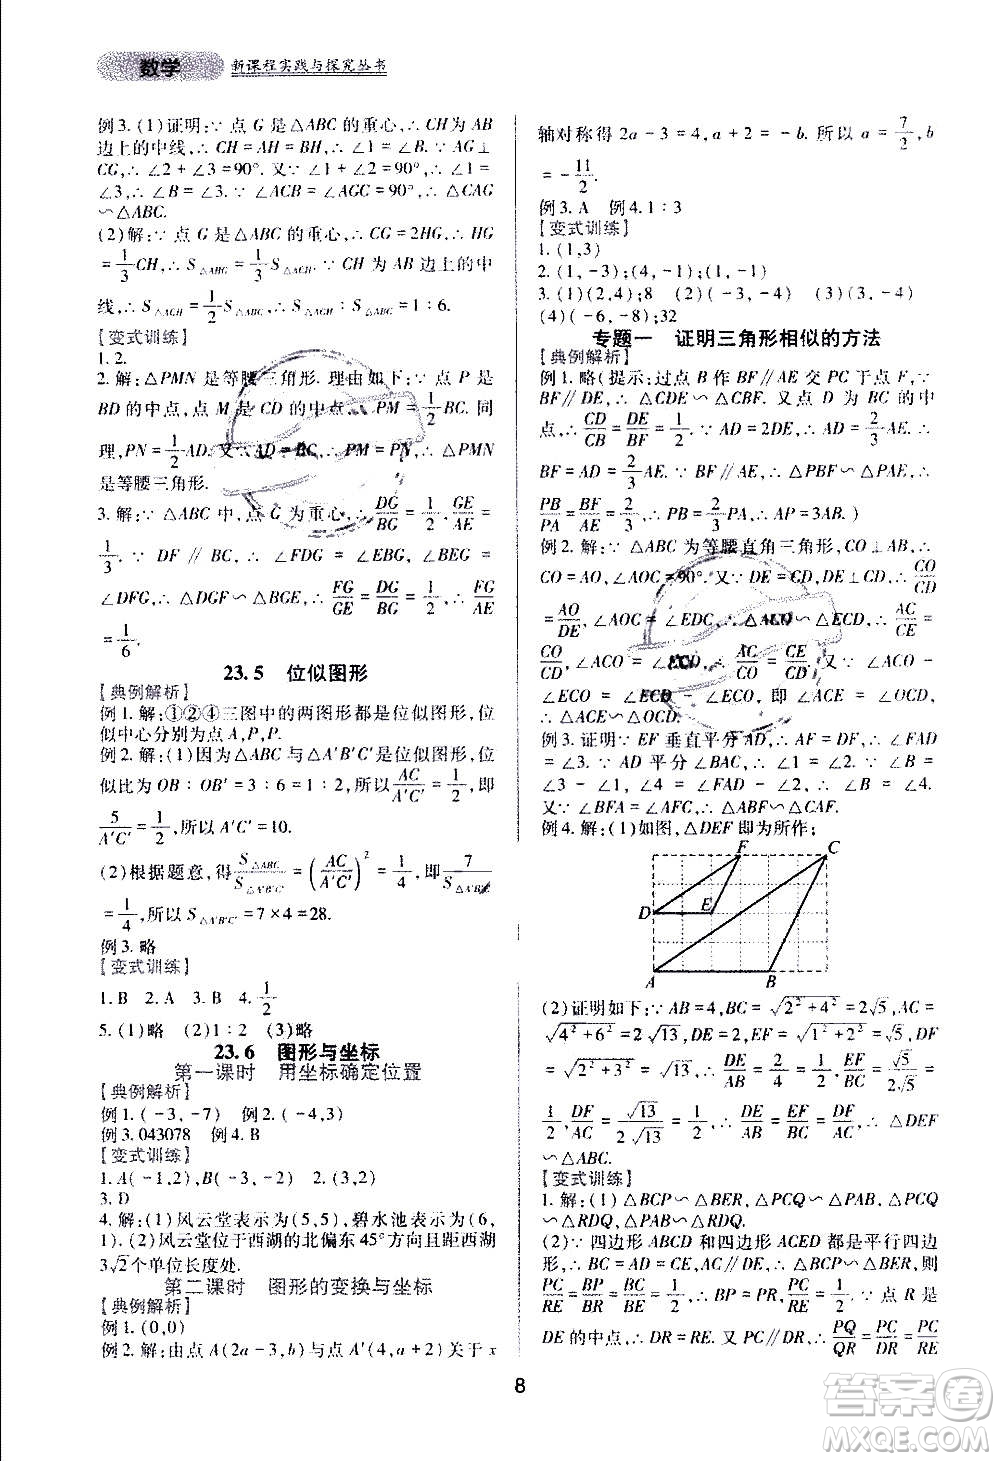 数学 新课程实践与探究丛书
例3.(1)证明:∵点G是△ABC的重心,∴CH为AB
边上的中线,∴CH=AH=BH,∴∠1=∠B.∵AG⊥
CH,∴∠1+∠2=90°.又∵∠1+∠ACH=90°,∴∠2
(2)解:∵点G是△ABC的重心,∴CG=2HG,∴HG
=1/3CH,∴S△AHG=1/3S△ACH.∵CH为AB边上的中
线,∴S△ACH=1/2S△ABC,∴S△AHG∶S△ABC=1∶6.
【变式训练】
1.2.
2.解:△PMN是等腰三角形.理由如下:∵点P是
BD的中点,点M是CD的中点,∴PM=1/2BC.同
理,PN=1/2AD.又∵AD=BC,∴PM=PN,∴△PMN
是等腰三角形.
3.解:∵△ABC中,点G为重心,∴DG/BG=1/2,GE/AE=
1/3.∵DF∥BC,∴∠FDG=∠EBG,∠BEG=
∠DFG,∴△DGF∽△BGE,∴FG/GE=DG/BG=1/2,∴FG/AE
=1/6.
23.5 位似图形
【典例解析】
例1.解:①②④三图中的两图形都是位似图形,位
似中心分别为点A,P,P.
例2.解:(1)因为△ABC与△A′B′C′是位似图形,位
似比为OB∶OB′=3∶6=1∶2,所以AC/A′C′=1/2,即
5/A′C′=1/2,所以A′C′=10.
(2)根据题意,得S△ABC/S△A′B′C′=(AC/A′C′)²=1/4,即7/S△A′B′C′
=1/4,所以S△A′B′C′=7×4=28.
例3.略
【变式训练】
1.B 2.A 3.B 4.1/2
5.(1)略 (2)1∶2 (3)略
23.6 图形与坐标
第一课时 用坐标确定位置
【典例解析】
例1.(-3,-7) 例2.(-4,3)
例3.043078 例4.B
【变式训练】
1.A(-1,2),B(-3,-2) 2.(3,2)
3.D
4.解:(1)风云堂表示为(5,5),碧水池表示为(6,
1).(2)风云堂位于西湖的北偏东45°方向且距西湖
3√2个单位长度处.
第二课时 图形的变换与坐标
【典例解析】
例1.(0,0)
例2.解:由点A(2a-3,b)与点A′(4,a+2)关于x
轴对称得2a-3=4,a+2=-b.所以a=7/2,b
=-11/2.
例3.A 例4.1∶3
【变式训练】
1.(1,3)
2.(1,-3);(4,-1);(1,-1)
3.(1)(2,4);8 (2)(-3,-4) (3)(3,-4)
(4)(-6,-8);32
专题一 证明三角形相似的方法
【典例解析】
例1.略(提示:过点B作BF∥AE交PC于点F,∵
BF∥DE,∴△CDE∽△CBF.又∵点D为BC的中
点,∴CD/CB=DE/BF=1/2,∵AD=2DE,∴AD=2/3AE.∴
BF=AD=2/3AE.∵BF∥AE,∴△PBF∽△PAE,∴
PB/PA=BF/AE=2/3,∴PB=2/3PA,∴PA=3AB.)
例2.解:∵△ABC为等腰直角三角形,CO⊥AB,∴
CO=AO,∠AOC=90°.又∵DE=CD,DE⊥CD,∴CO/CD
=AO/DE,∠AOC=∠EDC,∴△ACO∽△ECD,∴AC/CE=
CO/CD,∠ACO=∠ECD,∴AC/CO=CE/CD.∵∠ACO-
∠ECO=∠ECD-∠ECO,即∠ACE=∠OCD,
∴△ACE∽△OCD.
例3.证明:∵EF垂直平分AD,∴AF=DF,∴∠FAD
=∠3.∵AD平分∠BAC,∴∠1=∠2.
又∵∠BFA=∠AFC,∴△ABF∽△CAF.
例4.解:(1)如图,△DEF即为所作;
F C
D E
A B
(2)证明如下:∵AB=4,BC=√2²+4²=2√5,AC=
√4²+6²=2√13,DE=2,EF=√1²+2²=√5,DF
=√2²+3²=√13,∴DE/AB=2/4=1/2,EF/BC=√5/2√5=
1/2,DF/AC=√13/2√13=1/2,∴DE/AB=EF/BC=DF/AC,∴△DEF
∽△ABC.
【变式训练】
1.解:(1)△BCP∽△BER,△PCQ∽△PAB,△PCQ
∽△RDQ,△PAB∽△RDQ.
(2)∵四边形ABCD和四边形ACED都是平行四边
形,∴BC=AD=CE,AC∥DE,∴PB=PR,
PC/RE=BP/BR=PB/RE=1/2,∴BP=PR,PC/RE=1/2.∵点R是
DE的中点,∴DR=RE.又PC∥DR,∴PQ/QR=PC/DR=
PC/RE=
8
答案圈
MXQE.COM